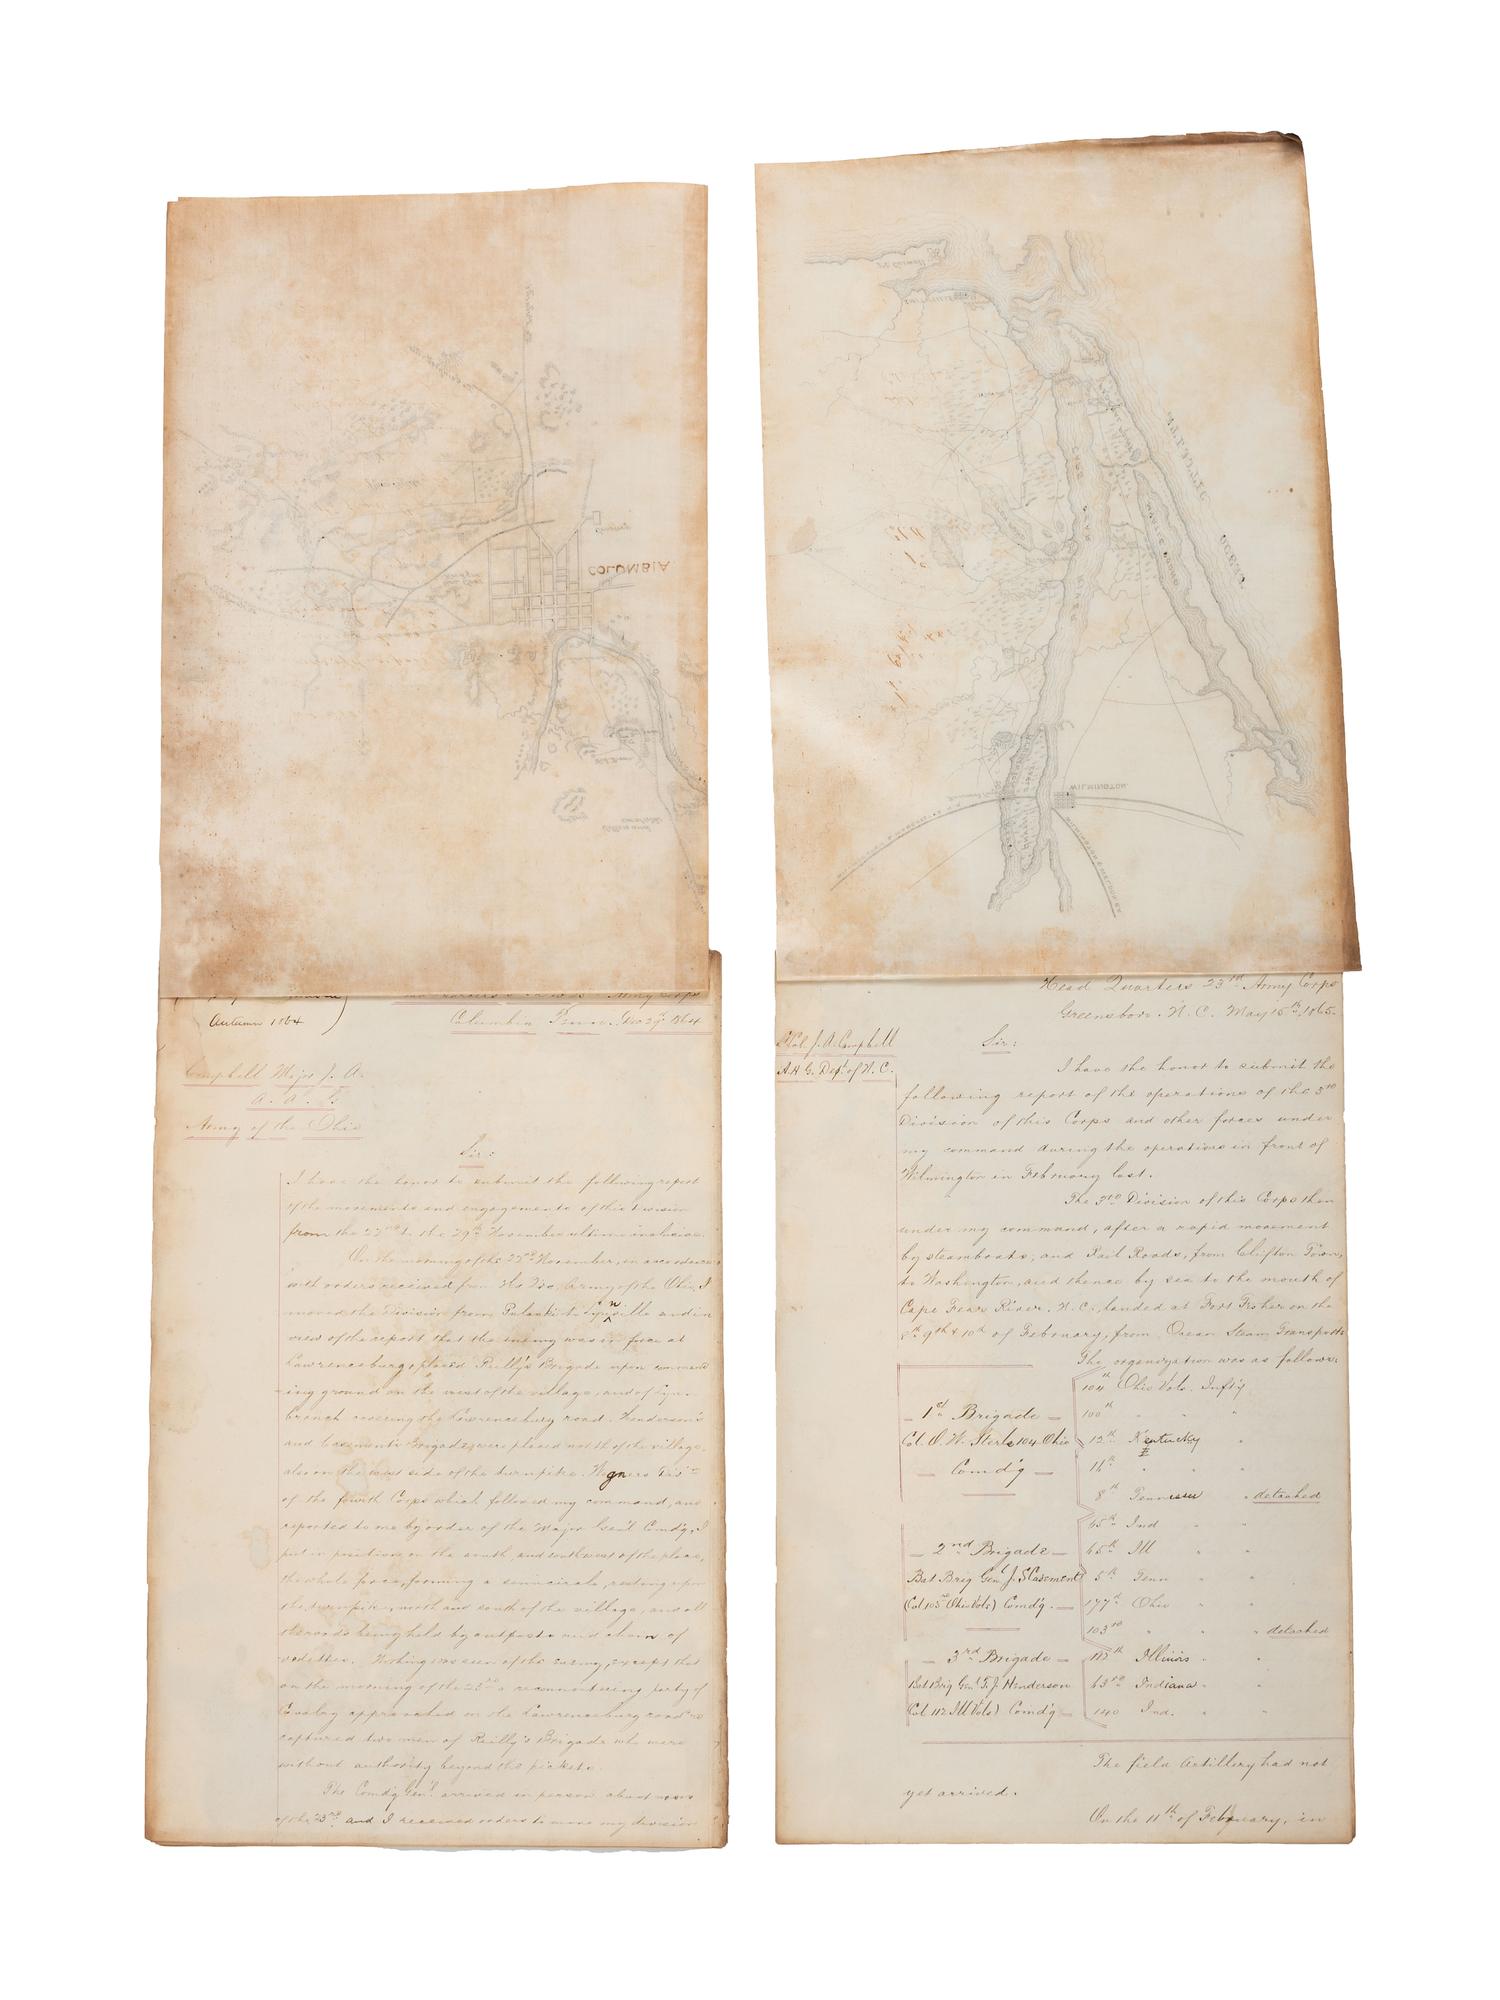 COLUMBIA
Autumn 1864
Columbia Tenn. Nov 29th 1864
Campbell Major J. A.
A. A. G.
Army of the Ohio
Sir:
I have the honor to submit the following report
of the movements and engagements of this Division
from the 22nd to the 29th November ultimo inclusive.
On the morning of the 22nd November, in accordance
with orders received from Hd Qrs. Army of the Ohio, I
moved the Division from Pulaski to Lynnville and in
view of the report that the enemy was in force at
Lawrenceburg, placed Reilly's Brigade upon command
-ing ground on the west of the village, and of Lynn
branch covering the Lawrenceburg road. Henderson's
and Casement's Brigades were placed north of the village,
also on the west side of the turnpike. Wagners Divn
of the fourth Corps which followed my command, and
reported to me by order of the Major Genl Comdg, I
put in position on the south, and southwest of the place,
the whole force, forming a semicircle, resting upon
the turnpike, north and south of the village, and all
the roads being held by outposts and chain of
vedettes. Nothing was seen of the enemy, except that
on the morning of the 23rd a reconnoitering party of
Cavalry approached on the Lawrenceburg road
captured two men of Reilly's Brigade who were
without authority beyond the pickets.
The Comdg Genl. arrived in person about noon
of the 23rd and I received orders to move my division
ATLANTIC
OCEAN
WILMINGTON
Head Quarters 23rd Army Corps
Greensboro. N. C. May 15th, 1865.
Lt Col. J. A. Campbell
A.A.G. Dept of N. C.
Sir:
I have the honor to submit the
following report of the operations of the 3rd
Division of this Corps and other forces under
my command during the operations in front of
Wilmington in February last.
The 3rd Division of this Corps then
under my command, after a rapid movement
by steamboats, and Rail Roads, from Clifton Tenn,
to Washington, and thence by sea to the mouth of
Cape Fear River. N. C., landed at Fort Fisher on the
8th 9th & 10th of February, from Ocean Steam Transports
The organization was as follows:
1st Brigade
Col. O. W. Sterl 104 Ohio
Comd'g
104th Ohio Vols. Inft'y
100th " " "
12th Kentucky "
16th " " "
8th Tennessee " detached
2nd Brigade
Bvt Brig Genl J. S Casement
(Col 103rd Ohio Vols) Comd'g.
65th Ind " "
65th Ill " "
5th Tenn " "
177th Ohio " "
103rd " " " detached
3rd Brigade
Bvt Brig Genl T. J Henderson
(Col 112 Ill Vols) Comd'g
112th Illinois " "
63rd Indiana " "
140 Ind. " "
The field Artillery had not
yet arrived.
On the 11th of February, in